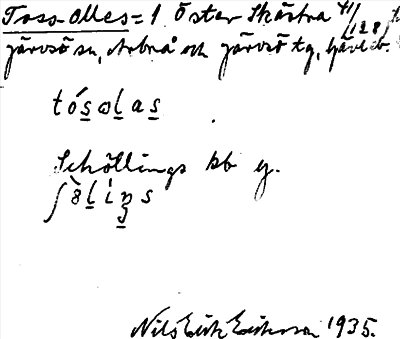 Toss-Olles = 1 Öster Skästra 4/128
Järvsö sn, Arbrå och Järvsö tg, Gävleb.
tósωlas
Schöllings kb g.
ʃ8lìŋs
Nils Erik Eriksson 1935.